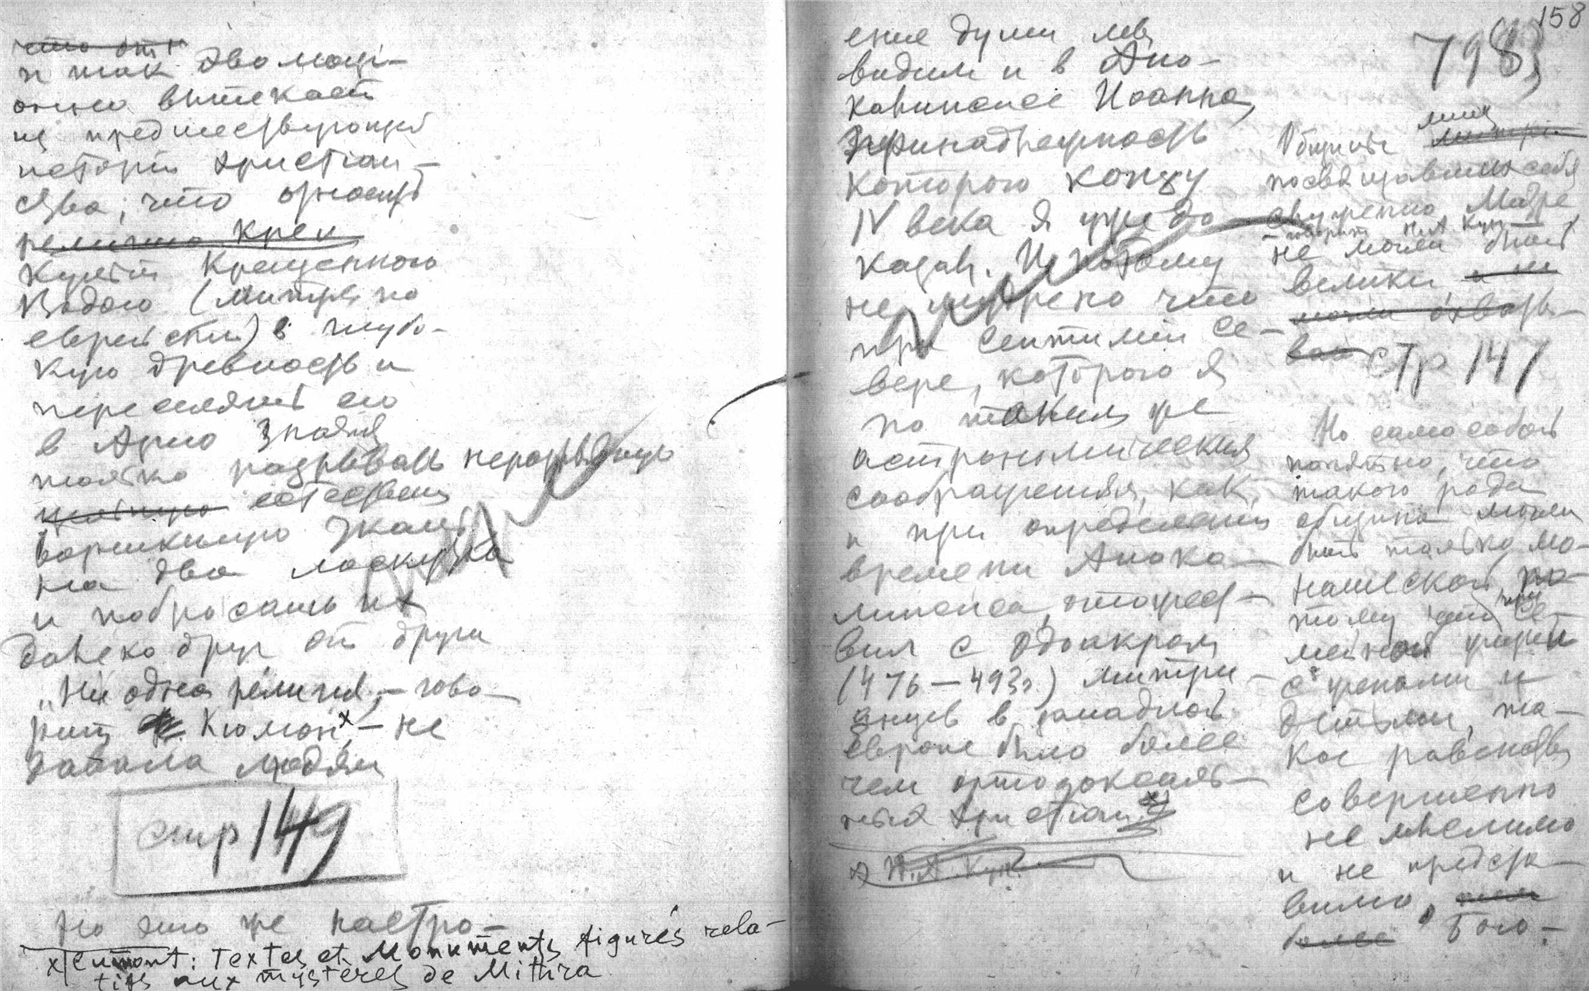 ~~что от~~
и так эволюци-
онно вытекает
из предшествующей
истории христиан-
ства, что относить
~~религию Крещ~~
культ Крещенного
Водою (Митры по
еврейски) в глубо-
кую древность и
переселять его
в Арию значит
только разрывать неразрывную
естествен
ткань
на два лоскутка
и побросать их
далеко друг от друга
„Ни одна религия, — гово-
рит Кюмон х — не
давала людям
стр 149
Но это же настро-
х) Cumont: Textes et Monuments figurés rela-
tifs aux mystères de Mithra
158
798
ение души мы
видим и в Апо-
калипсисе Иоанна,
принадлежность
которого концу
IV века я уже до-
казал. И потому
не мудрено что
при Септимии Се-
вере, которого я
по таким же
астрономическим
соображениям, как
и при определении
времени Апока-
липсиса, отожест-
вил с Одоакром
(476—493г.) митри-
анцев в западной
Европе было более
чем ортодоксаль-
ных христиан х)
Общины лиц
посвящавших себя
служению Митре
— говорит
не могли быть
велики,
стр 147
Но само собой
понятно, что
такого рода
община могла
быть только мо-
нашеской, по-
тому что при се-
мейной жизни
с женами и
детьми, та-
кое равенство
совершенно
не мыслимо
и не предста-
вимо,
~~более~~ Того-